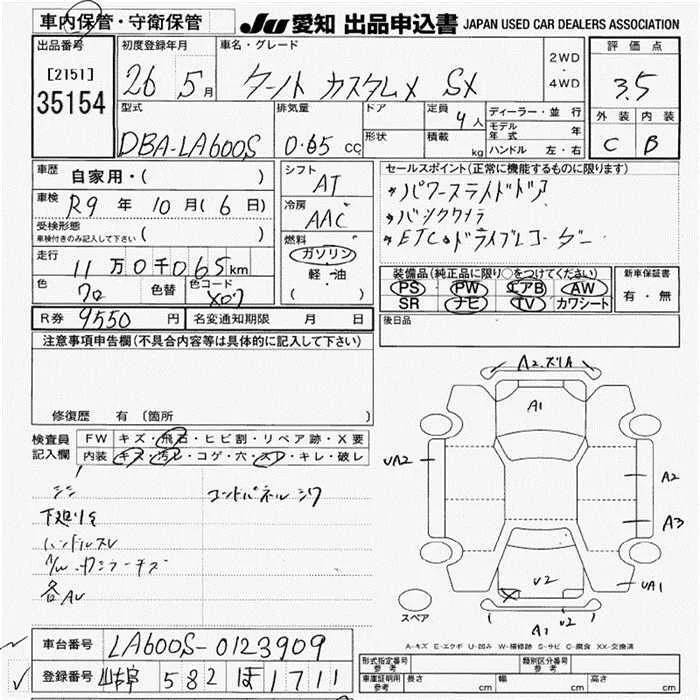 車内保管・守衛保管
JU 愛知 出品申込書 JAPAN USED CAR DEALERS ASSOCIATION
出品番号
[2151]
35154
初度登録年月
26 5月
車名・グレード
カスタムX SX
2WD
・
4WD
評価点
3.5
外装 内装
C B
型式
DBA-LA600S
排気量
0.65 cc
ドア
形状
定員
4人
積載
kg
ディーラー・並行
モデル年式 年
ハンドル 左・右
車歴
自家用・( )
車検
R9 年 10 月 ( 6 日)
受検形態
車検付きのみ記入して下さい ( )
走行
11 万 0 千 065 km
色
クロ
色替
色コード
X07
シフト
AT
冷房
AAC
燃料
ガソリン
軽・油
( )
セールスポイント (正常に機能するものに限ります)
*パワースライドドア
*バックカメラ
*ETC*ドライブレコーダー
装備品(純正品に限り○をつけてください)
PS PW エアB AW
SR ナビ TV カワシート
新車保証書
有・無
後日品
R券 9550 円 名変通知期限 月 日
注意事項申告欄(不具合内容等は具体的に記入して下さい)
修復歴 有 〔箇所
検査員
記入欄
FW キズ・飛石・ヒビ割・リペア跡・X要
内装 キズ・汚レ・コゲ・穴・スレ・キレ・破レ
コンドパネル シワ
下廻りサ
ハンドルスレ
各AU
A2.ズリA
A1
UA2
A2
A3
U2
UA1
X
A1
U2
スペア
A-キズ E-エクボ U-凹み W-補修跡 S-サビ C-腐食 XX-交換済
車台番号 LA600S-0123909
登録番号 岐阜 582 ほ 1711
形式指定番号
参考
類別区分番号
参考
車庫証明用
参考
長さ cm 幅 cm 高さ cm